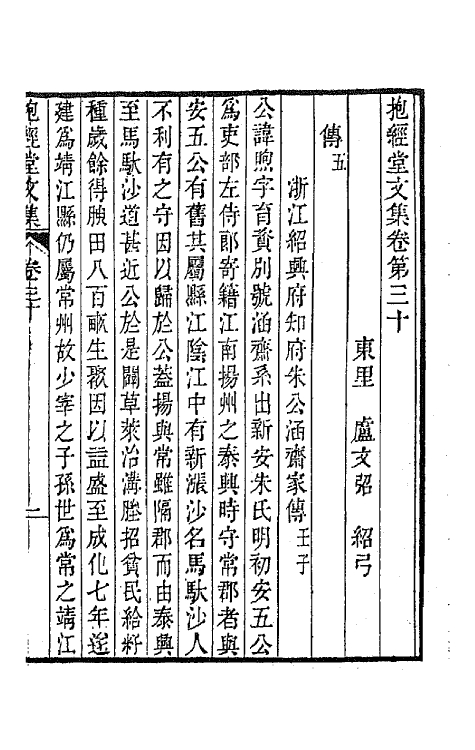 抱經堂文集卷第三十
東里　盧文弨　紹弓
傳五
浙江紹興府知府朱公涵齋家傳 壬子
公諱煦字育賚別號涵齋系出新安朱氏明初安五公
爲吏部左侍郎寄籍江南揚州之泰興時守常郡者與
安五公有舊其屬縣江陰江中有新漲沙名馬馱沙人
不利有之守因以歸於公蓋揚與常雖隔郡而由泰興
至馬馱沙道甚近公於是闢草萊治溝塍招貧民給籽
種歲餘得腴田八百畝生聚因以益盛至成化七年遂
建爲靖江縣仍屬常州故少宰之子孫世爲常之靖江
抱經堂文集　卷三十　一